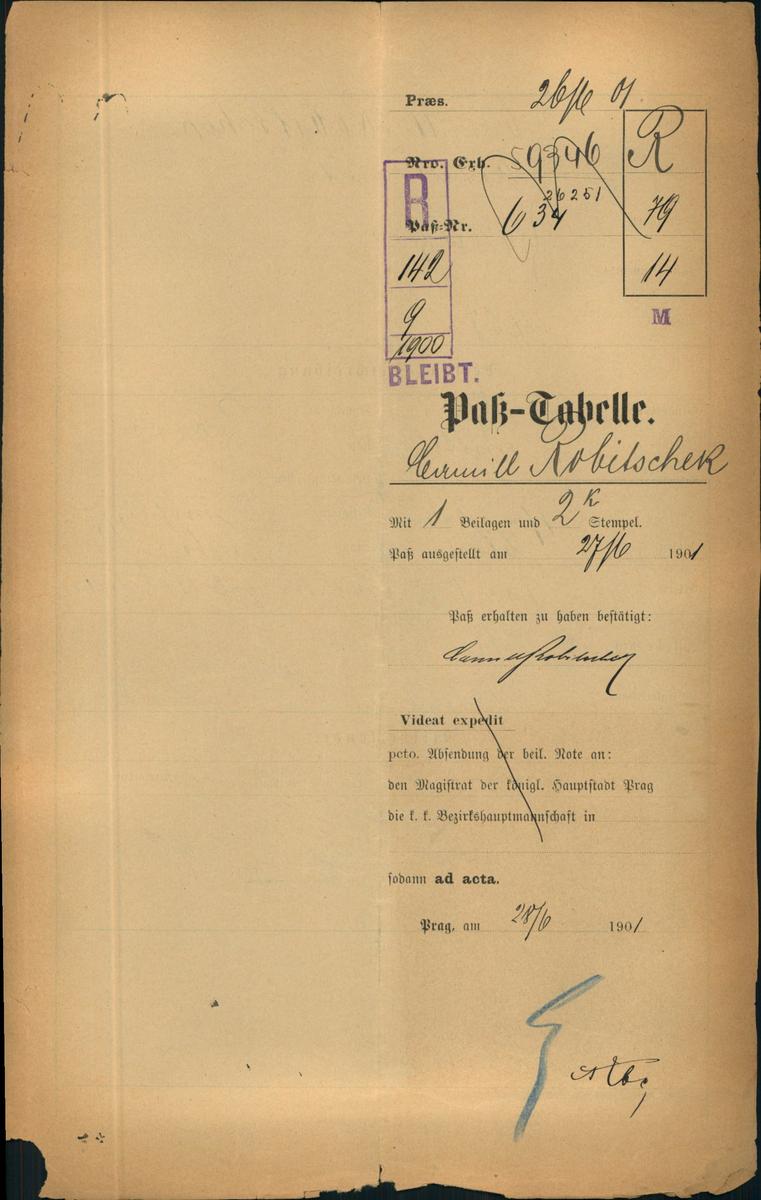 Præs. 26/6 01
Nro. Exh. 59346
R
26251
Paß-Nr. 634
79
14
M
B
142
9
1900
BLEIBT.
Paß-Tabelle.
Camill Robitschek
Mit 1 Beilagen und 2 K Stempel.
Paß ausgestellt am 27/6 1901
Paß erhalten zu haben bestätigt:
Camill Robitschek
Videat expedit
pcto. Absendung der beil. Note an:
den Magistrat der königl. Hauptstadt Prag
die k. k. Bezirkshauptmannschaft in
sodann ad acta.
Prag, am 28/6 1901